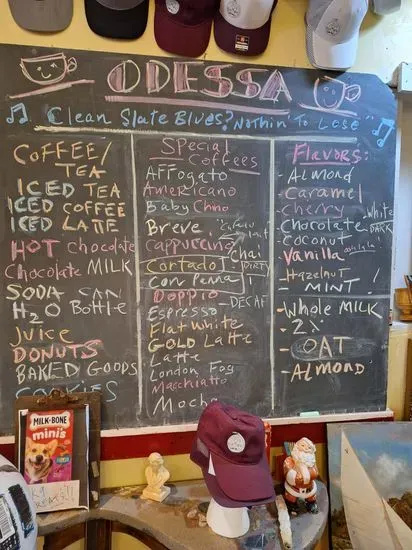 ODESSA
Clean Slate Blues? "Nothin' To Lose"
COFFEE/
TEA
ICED TEA
ICED COFFEE
ICED LATTE
HOT chocolate
Chocolate MILK
SODA CAN
H2O Bottle
JUICE
DONUTS
BAKED GOODS
COOKIES
Special
Coffees
AFFogato
Americano
Baby Chino
Breve
Cappuccino
Chai
Cortado - DIRTY
Con Panna
Doppio - DECAF
Espresso
Flat White
GOLD Latte
Latte
London Fog
Macchiato
Mocha
Flavors:
- ALMOND
- Caramel
- Cherry
- Chocolate - White
DARK
- Coconut
- Vanilla
- Hazelnut
- MINT!
- Whole MILK
- 2%
- OAT
- ALMOND
MILK-BONE
minis